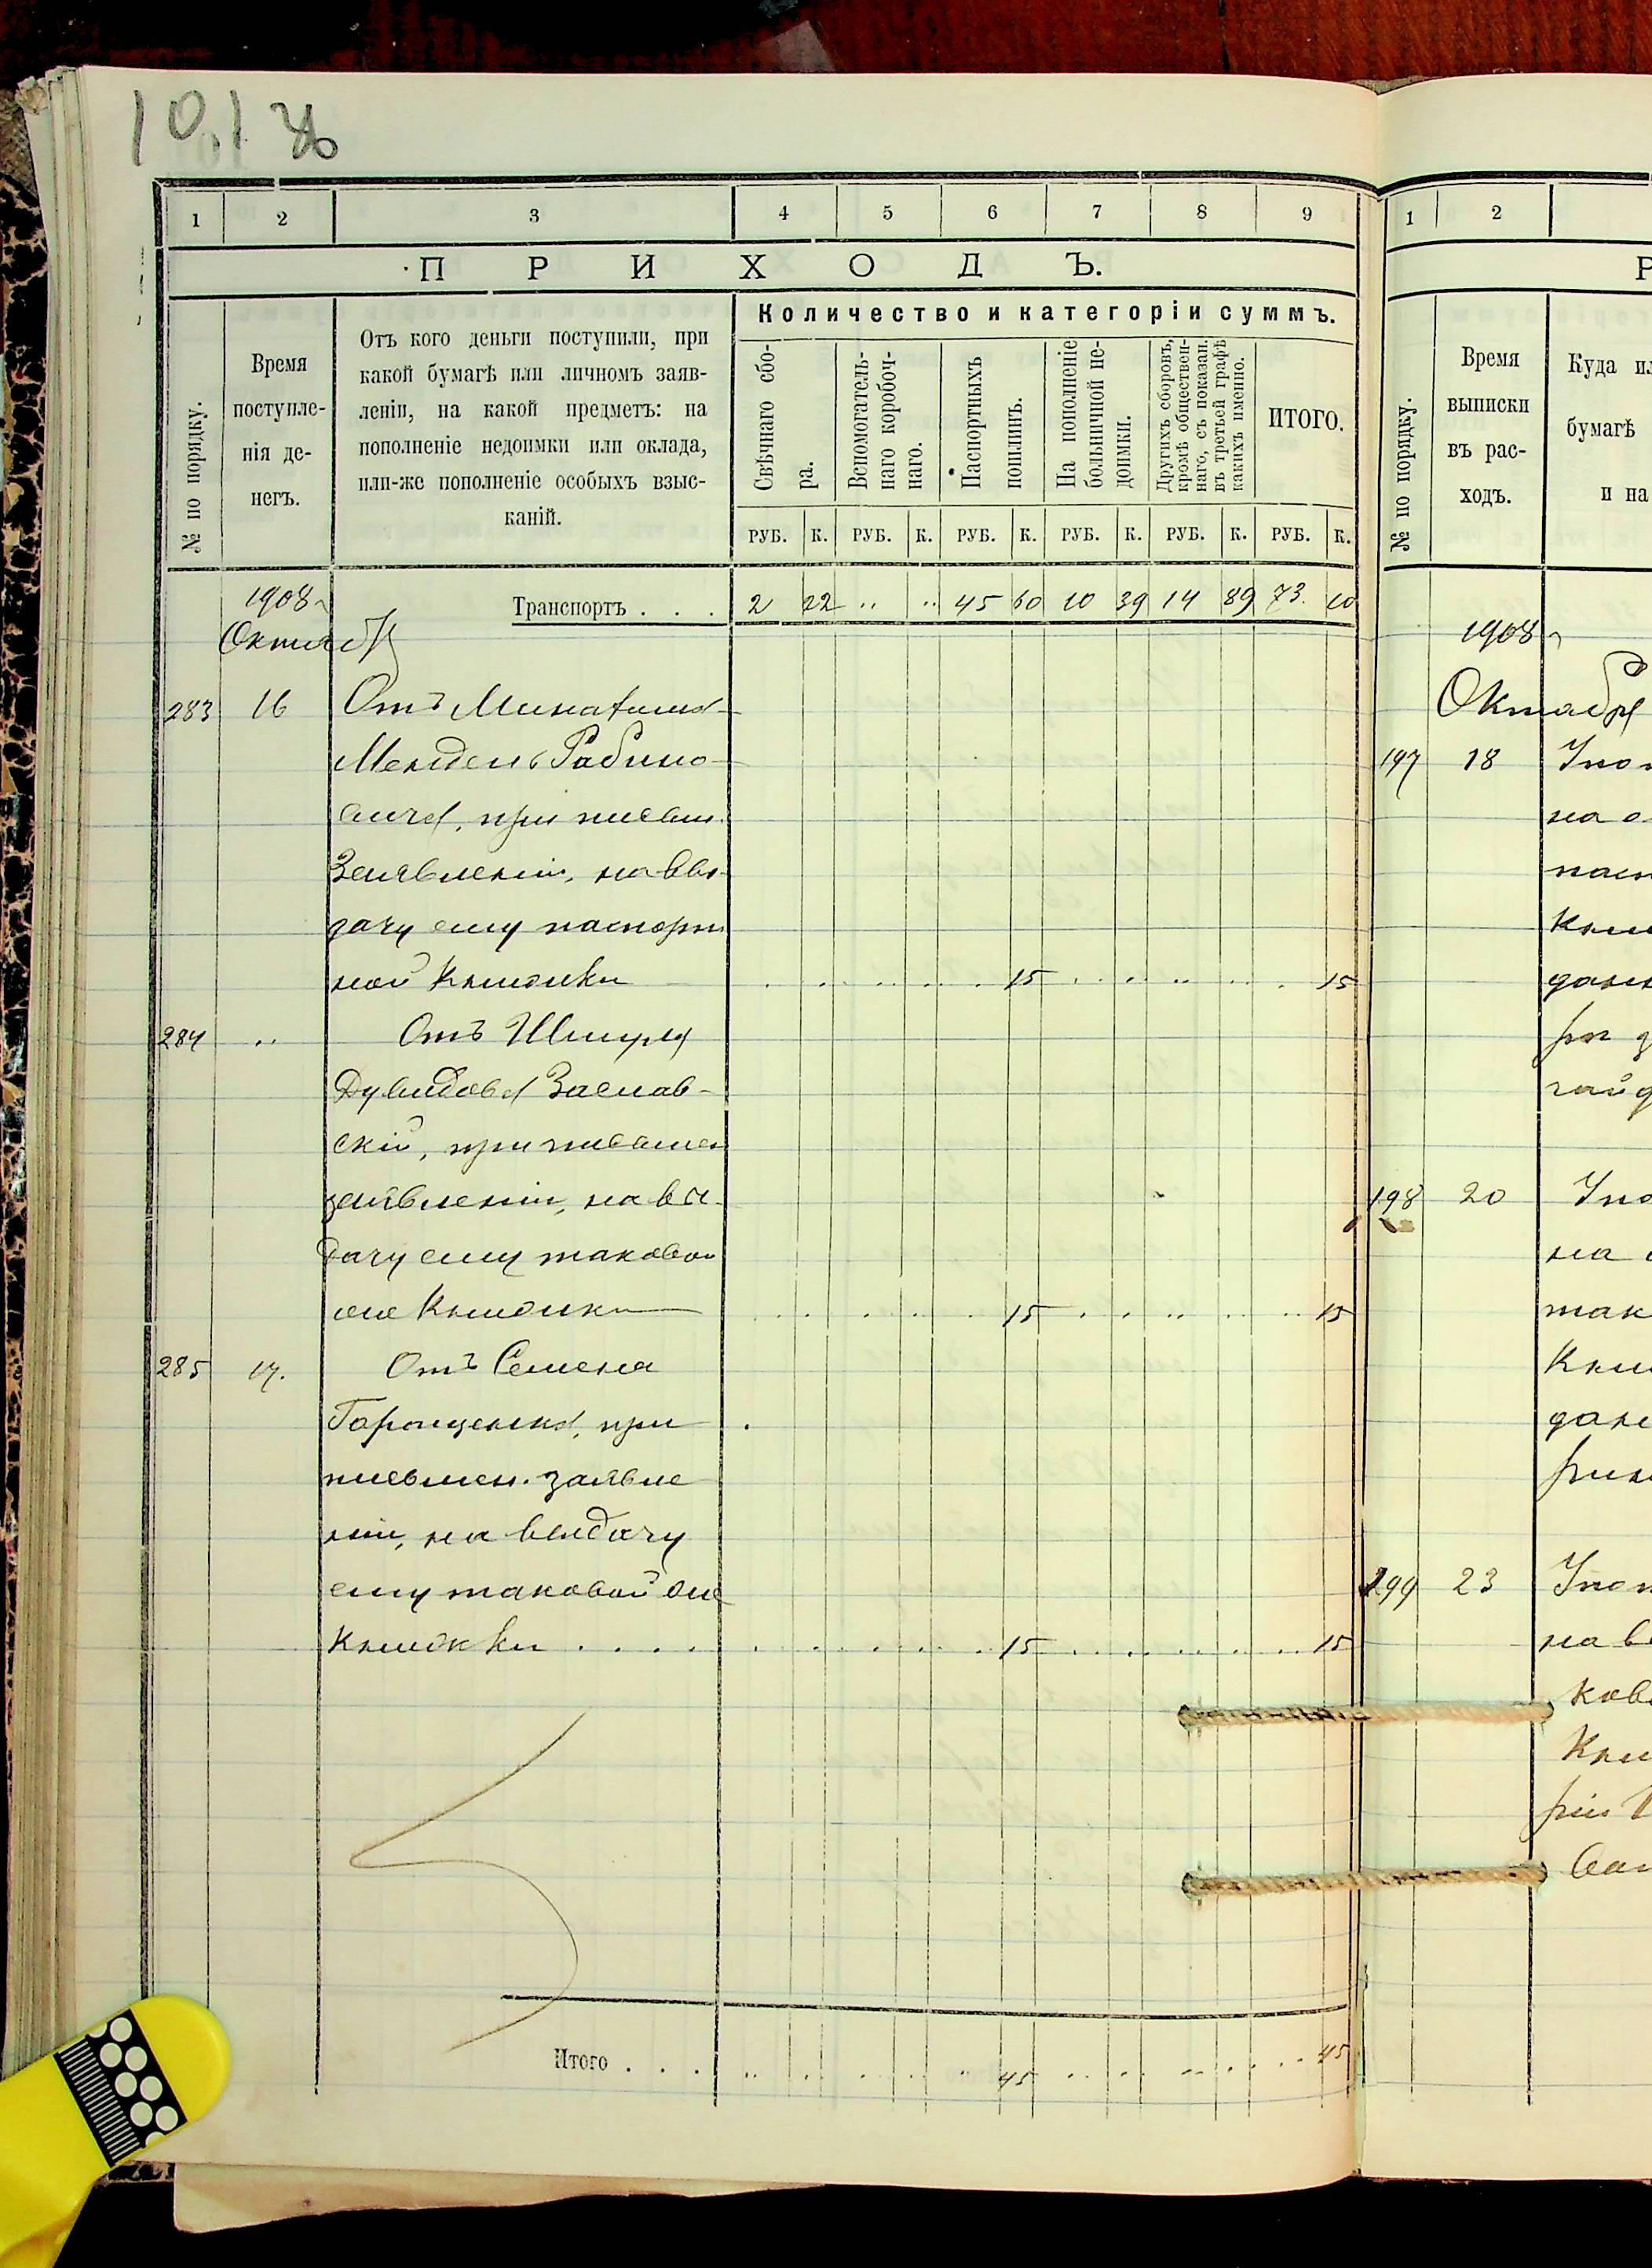 101
1 2 3 4 5 6 7 8 9
ПРИХОДЪ.
№ по порядку.
Время
поступле-
нія де-
негъ.
Отъ кого деньги поступили, при
какой бумагѣ или личномъ заяв-
леніи, на какой предметъ: на
пополненіе недоимки или оклада,
или-же пополненіе особыхъ взыс-
каній.
Количество и категоріи суммъ.
Свѣчнаго сбо-
ра.
Вспомогатель-
наго коробоч-
наго.
Паспортныхъ
пошлинъ.
На пополненіе
больничной не-
доимки.
Другихъ сборовъ,
кромѣ обществен-
наго, съ показан.
въ третьей графѣ
какихъ именно.
ИТОГО.
РУБ. К. РУБ. К. РУБ. К. РУБ. К. РУБ. К. РУБ. К.
1908 Транспортъ . . . 2 22 " " 45 60 10 39 14 89 73. 10
Октября
283 16 Отъ
Мендель Рабино-
вича, при письм.
Заявленіи, на вы-
дачу ему паспорт
ной книжки 15 15
284 " Отъ Шмуля
Дувидова Заслав-
скій, при письмен
заявленіи, на вы-
дачу ему таковой
же книжки 15 15
285 17. Отъ Семена
Горощенка, при
письмен. заявле
ніи, на выдачу
ему таковой же
книжки . . . . 15 15
Итого . . . 45 45
1 2
Р
№ по порядку.
Время
выписки
въ рас-
ходъ.
Куда ил
бумагѣ
и на
1908
Октября
197 18
на о
дан
198 20
на
так
Кни
дан
199 23
на в
ков
Кни